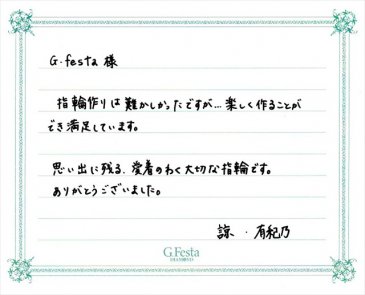 G.festa 様
指輪作りは難かしかったですが…楽しく作ることが
でき満足しています。
思い出に残る、愛着のわく大切な指輪です。
ありがとうございました。
諒・有紀乃
G.Festa